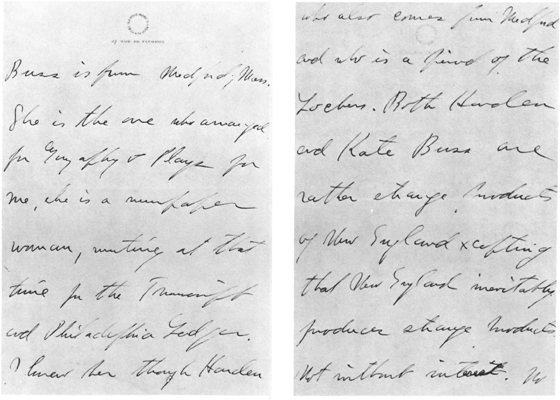 27 RUE DE FLEURUS
Buss is from Medford, Mass.
She is the one who arranged
for Geography & Plays for
me, she is a newspaper
woman, writing at that
time for the Transcript
and Philadelphia Ledger.
I knew her though Harden
who also comes from Medford
and who is a friend of the
Loebers. Both Harden
and Kate Buss are
rather strange products
of New England xcepting
that New England inevitably
produces strange products
not without interest. No